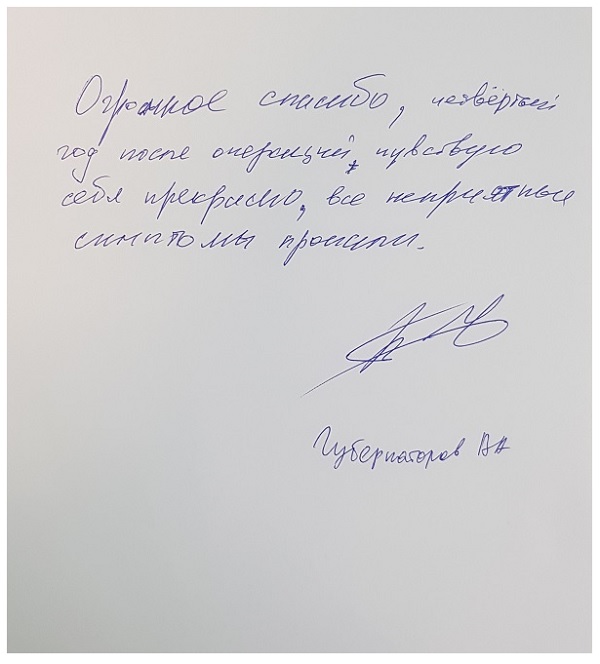 Огромное спасибо, четвёртый
год после операции, чувствую
себя прекрасно, все неприятные
симптомы прошли.
Губернаторов